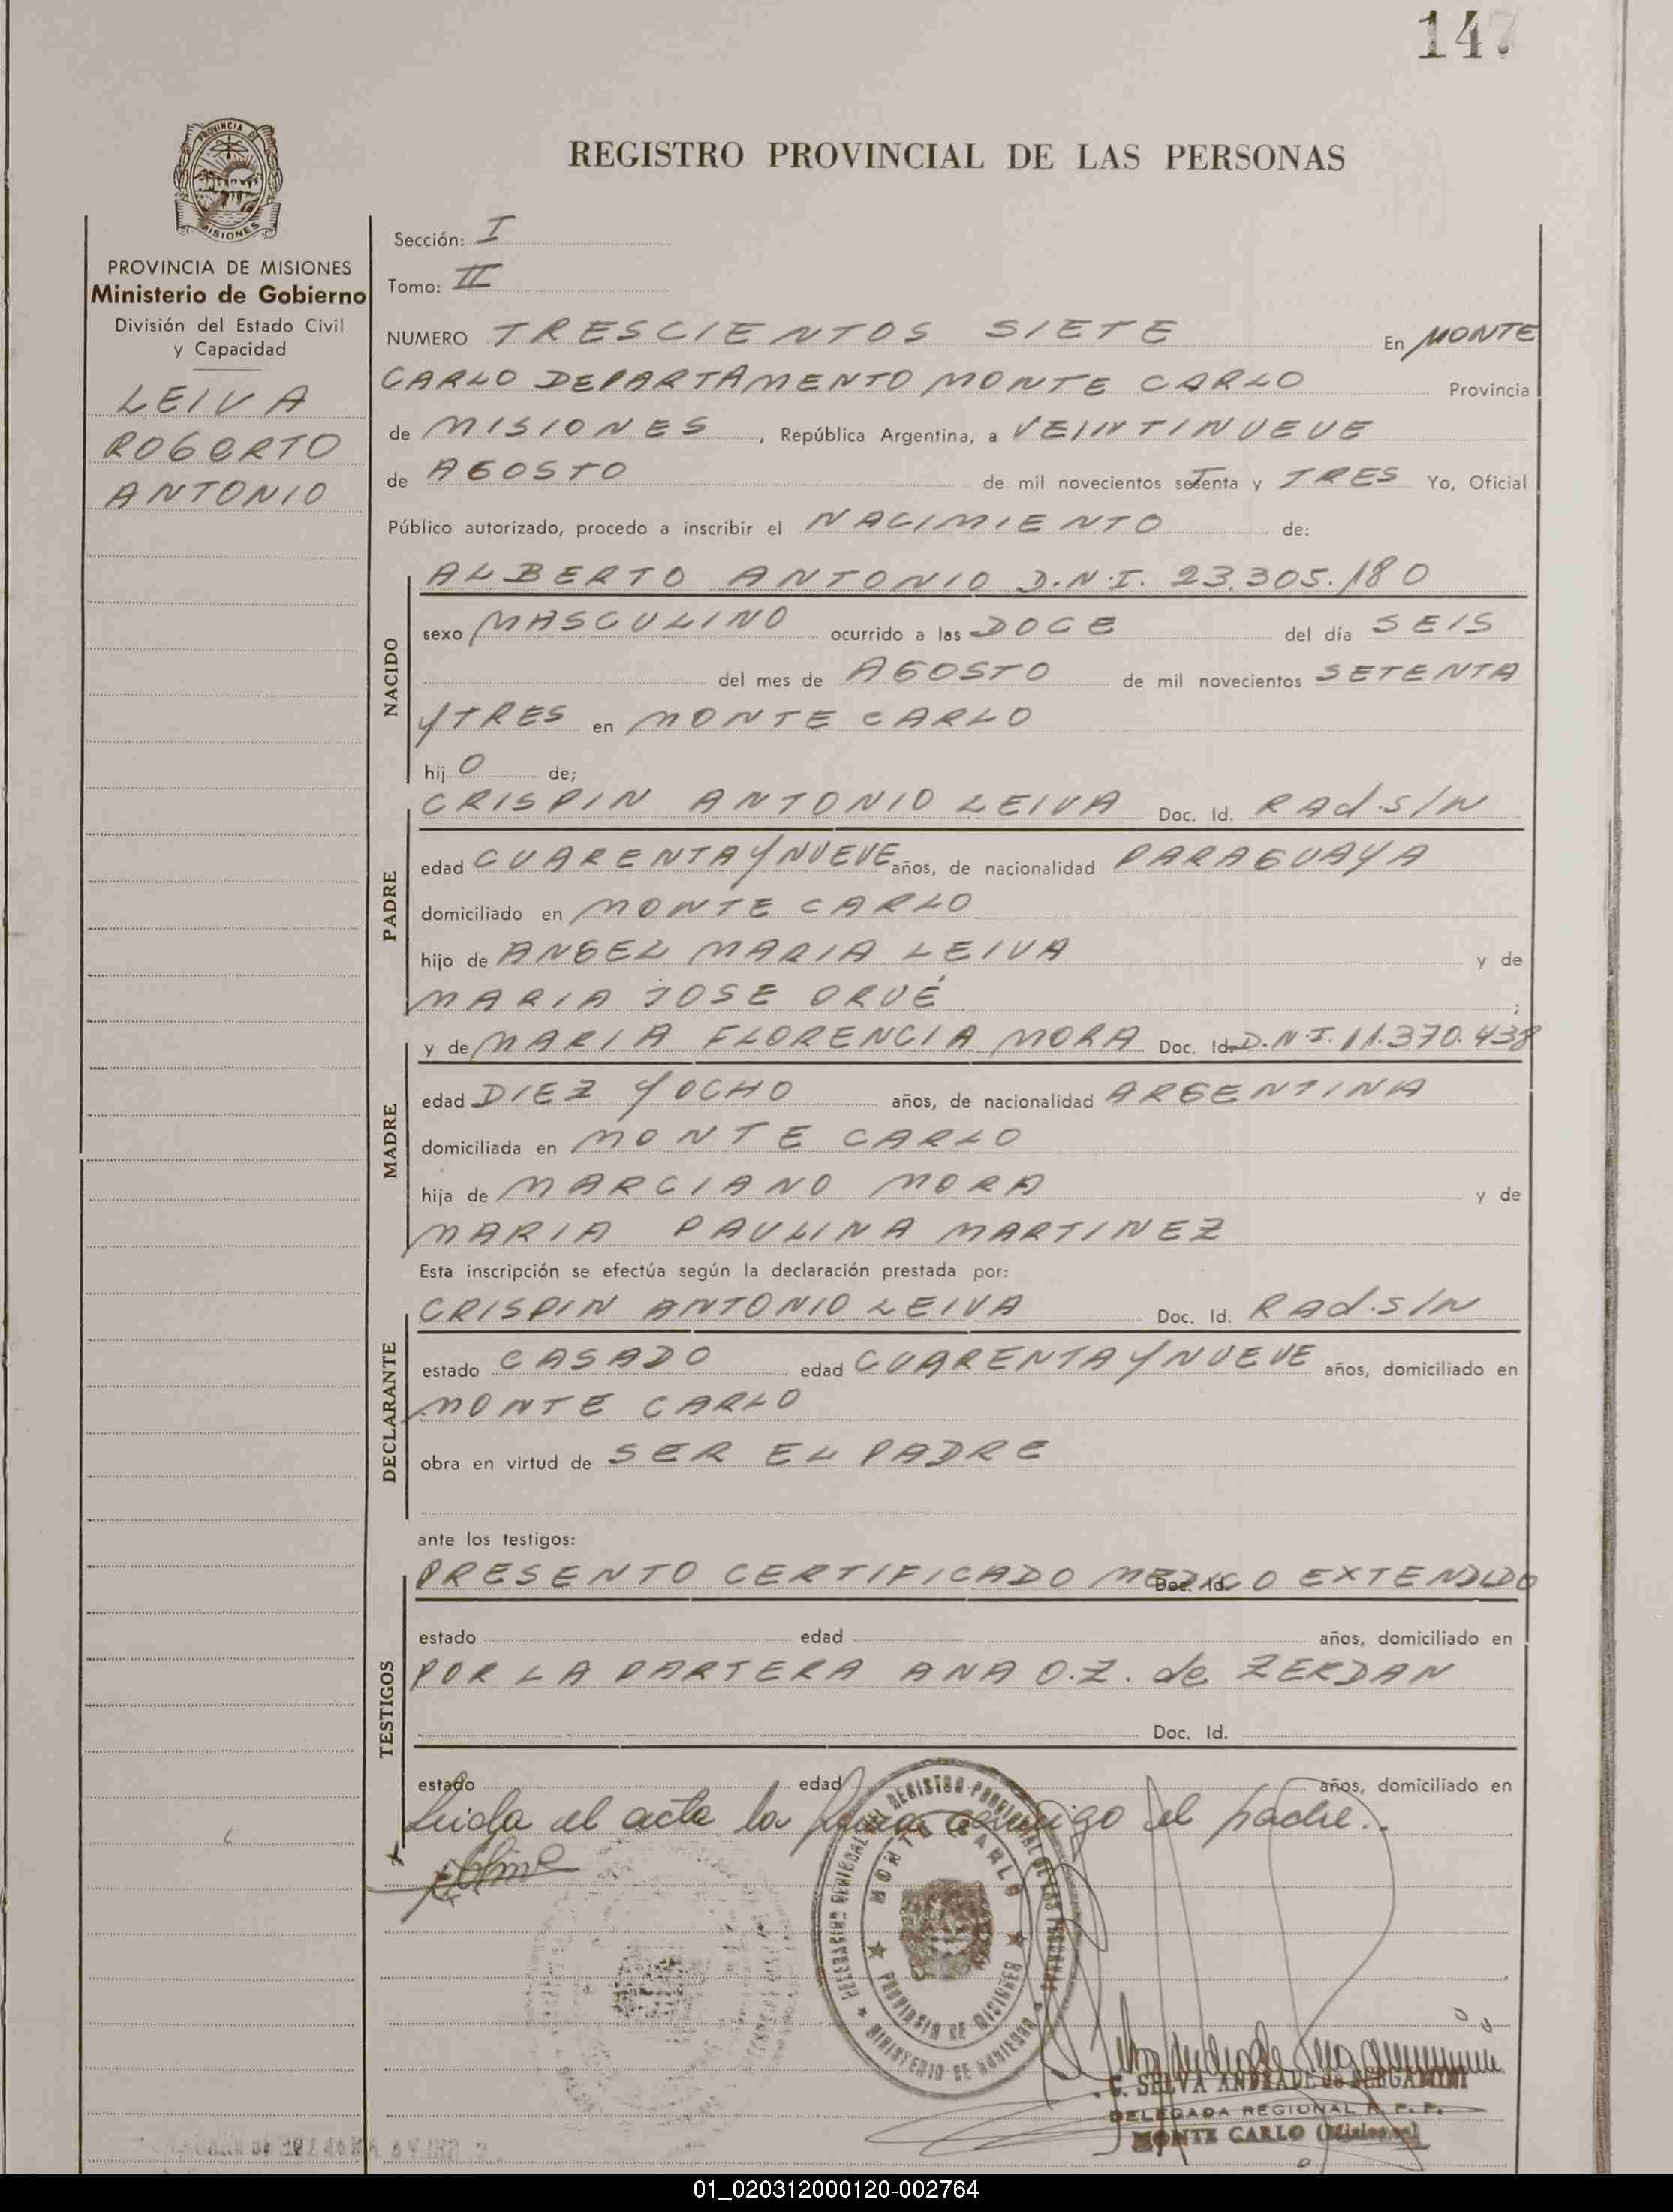 147
PROVINCIA DE
MISIONES
REGISTRO PROVINCIAL DE LAS PERSONAS
PROVINCIA DE MISIONES
Ministerio de Gobierno
División del Estado Civil
y Capacidad
LEIVA
ROBERTO
ANTONIO
Sección: I
Tomo: II
NUMERO TRESCIENTOS SIETE En MONTE
CARLO DEPARTAMENTO MONTE CARLO Provincia
de MISIONES, República Argentina, a VEINTINUEVE
de AGOSTO de mil novecientos setenta y TRES Yo, Oficial
Público autorizado, procedo a inscribir el NACIMIENTO de:
NACIDO
ALBERTO ANTONIO D.N.I. 23.305.180
sexo MASCULINO ocurrido a las DOCE del día SEIS
del mes de AGOSTO de mil novecientos SETENTA
Y TRES en MONTE CARLO
hij O de;
PADRE
CRISPIN ANTONIO LEIVA Doc. Id. RAd.S/N
edad CUARENTA Y NUEVE años, de nacionalidad PARAGUAYA
domiciliado en MONTE CARLO
hijo de ANGEL MARIA LEIVA y de
MARIA JOSE ORUÉ ;
MADRE
y de MARIA FLORENCIA MORA Doc. Id. D.N.I. 11.370.438
edad DIEZ Y OCHO años, de nacionalidad ARGENTINA
domiciliada en MONTE CARLO
hija de MARCIANO MORA y de
MARIA PAULINA MARTINEZ
Esta inscripción se efectúa según la declaración prestada por:
DECLARANTE
CRISPIN ANTONIO LEIVA Doc. Id. RAd.S/N
estado CASADO edad CUARENTA Y NUEVE años, domiciliado en
MONTE CARLO
obra en virtud de SER EL PADRE
ante los testigos:
TESTIGOS
PRESENTO CERTIFICADO MEDICO EXTENDIDO
Doc. Id.
estado edad años, domiciliado en
POR LA PARTERA ANA O.Z. de ZERDAN
Doc. Id.
estado edad años, domiciliado en
Leida el acta la firma conmigo el padre.
DELEGACION REGIONAL DEL REGISTRO PROVINCIAL DE LAS PERSONAS
MONTE CARLO
PROVINCIA DE MISIONES
MINISTERIO DE GOBIERNO
C. SELVA ANDRADE de BERGAMINI
DELEGADA REGIONAL R. P. P.
MONTE CARLO (Misiones)
01_020312000120-002764